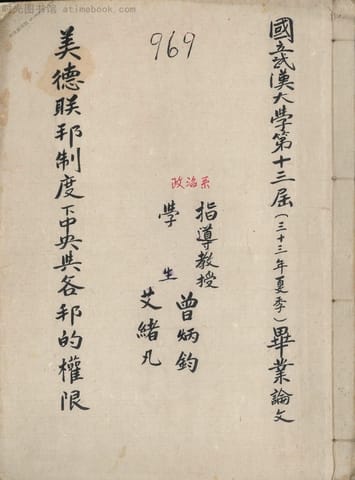 國立武漢大學第十三屆(三十三年夏季)畢業論文
969
政治系
指導教授 曾炳鈞
學生 艾緒凡
美德联邦制度下中央與各邦的權限
时光图书馆 - atimebook.com